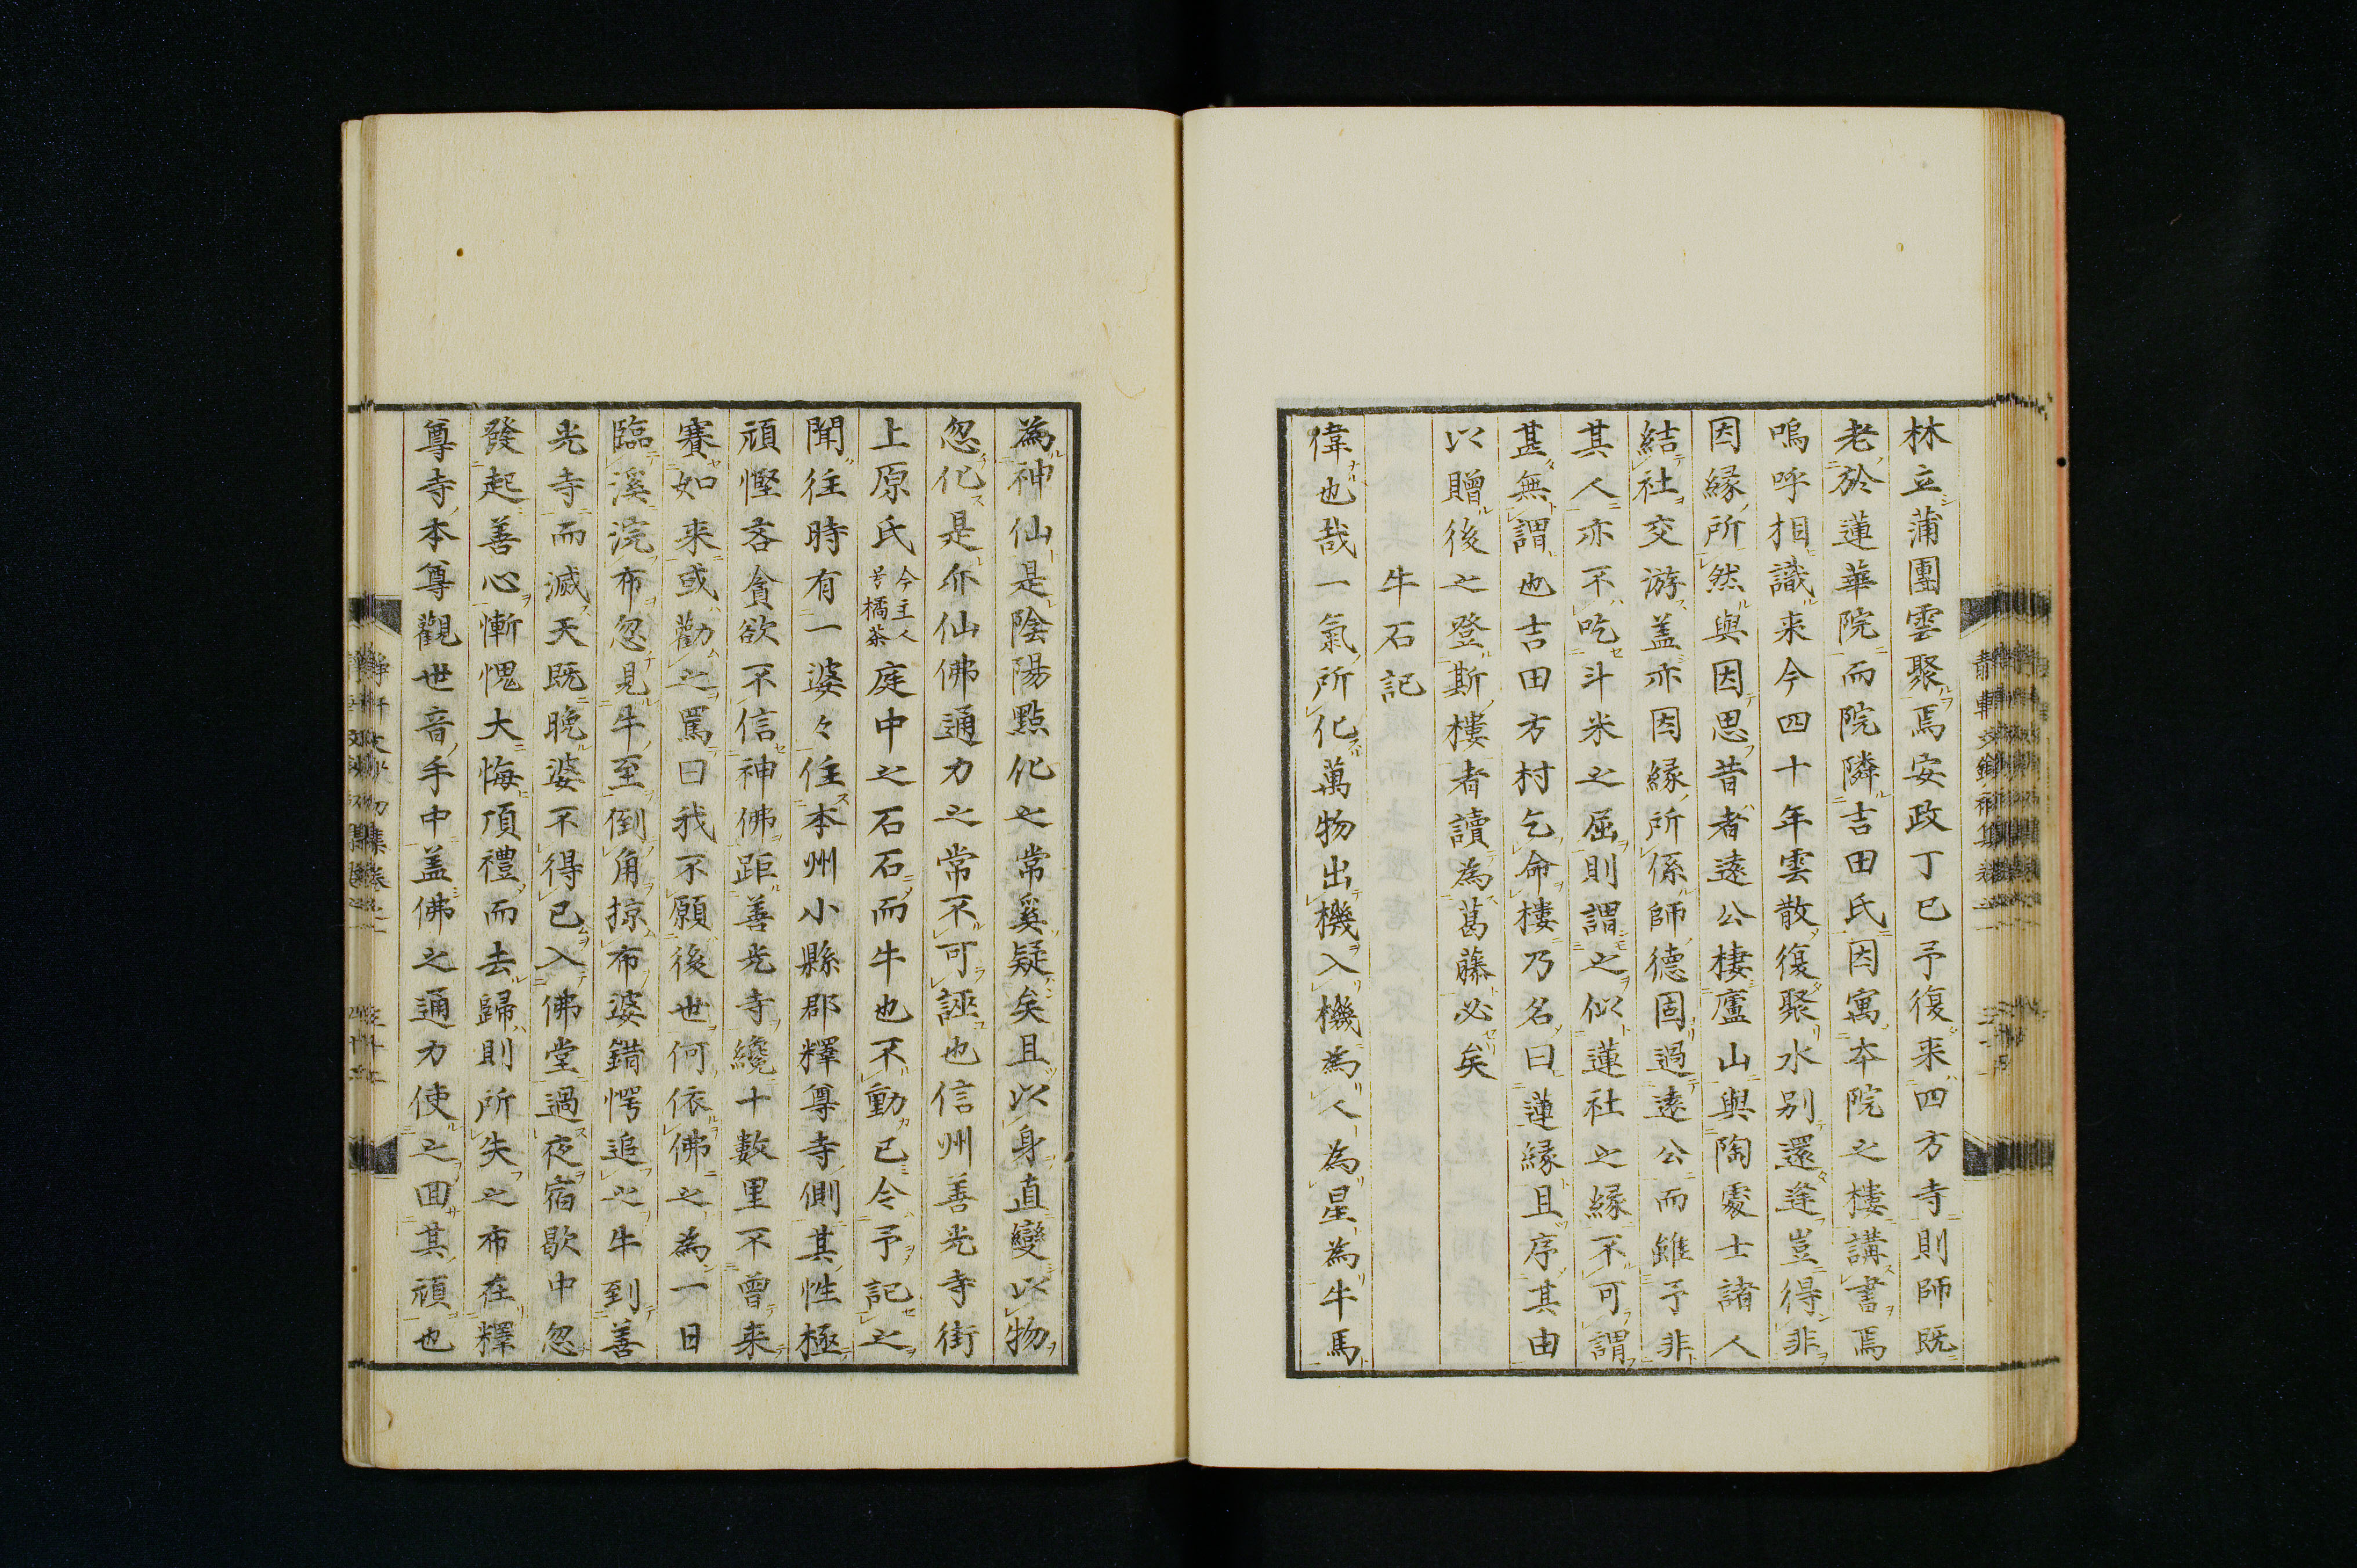 林立蒲團雲聚焉安政丁巳予復来四方寺則師既
老於蓮華院而院隣吉田氏因寓本院之樓講書焉
嗚呼相識来今四十年雲散復聚水別還逢豈得非
因縁所然與因思昔者遠公棲廬山與陶處士諸人
結社交游盖亦因縁所係師德固過遠公而雖予非
其人亦不吃斗米之屈則謂之似蓮社之縁不可謂
甚無謂也吉田方村乞命樓乃名曰蓮縁且序其由
以贈後之登斯樓者讀為葛藤必矣
牛石記
偉也哉一氣所化萬物出機入機為人為星為牛馬
為神仙是陰陽點化之常奚疑矣且以身直變以物
忽化是亦仙佛通力之常不可誣也信州善光寺街
上原氏今主人号橘茶庭中之石石而牛也不動已令予記之
聞往時有一婆々住本州小縣郡釋尊寺側其性極
頑慳吝貪欲不信神佛距善光寺纔十數里不曾来
賽如来或勸之罵曰我不願後世何依佛之為一日
臨溪浣布忽見牛至倒角掠布婆錯愕追之牛到善
光寺而滅天既晚婆不得已入佛堂過夜宿歇中忽
發起善心慚愧大悔頂禮而去歸則所失之布在釋
尊寺本尊觀世音手中盖佛之通力使之囬其頑也